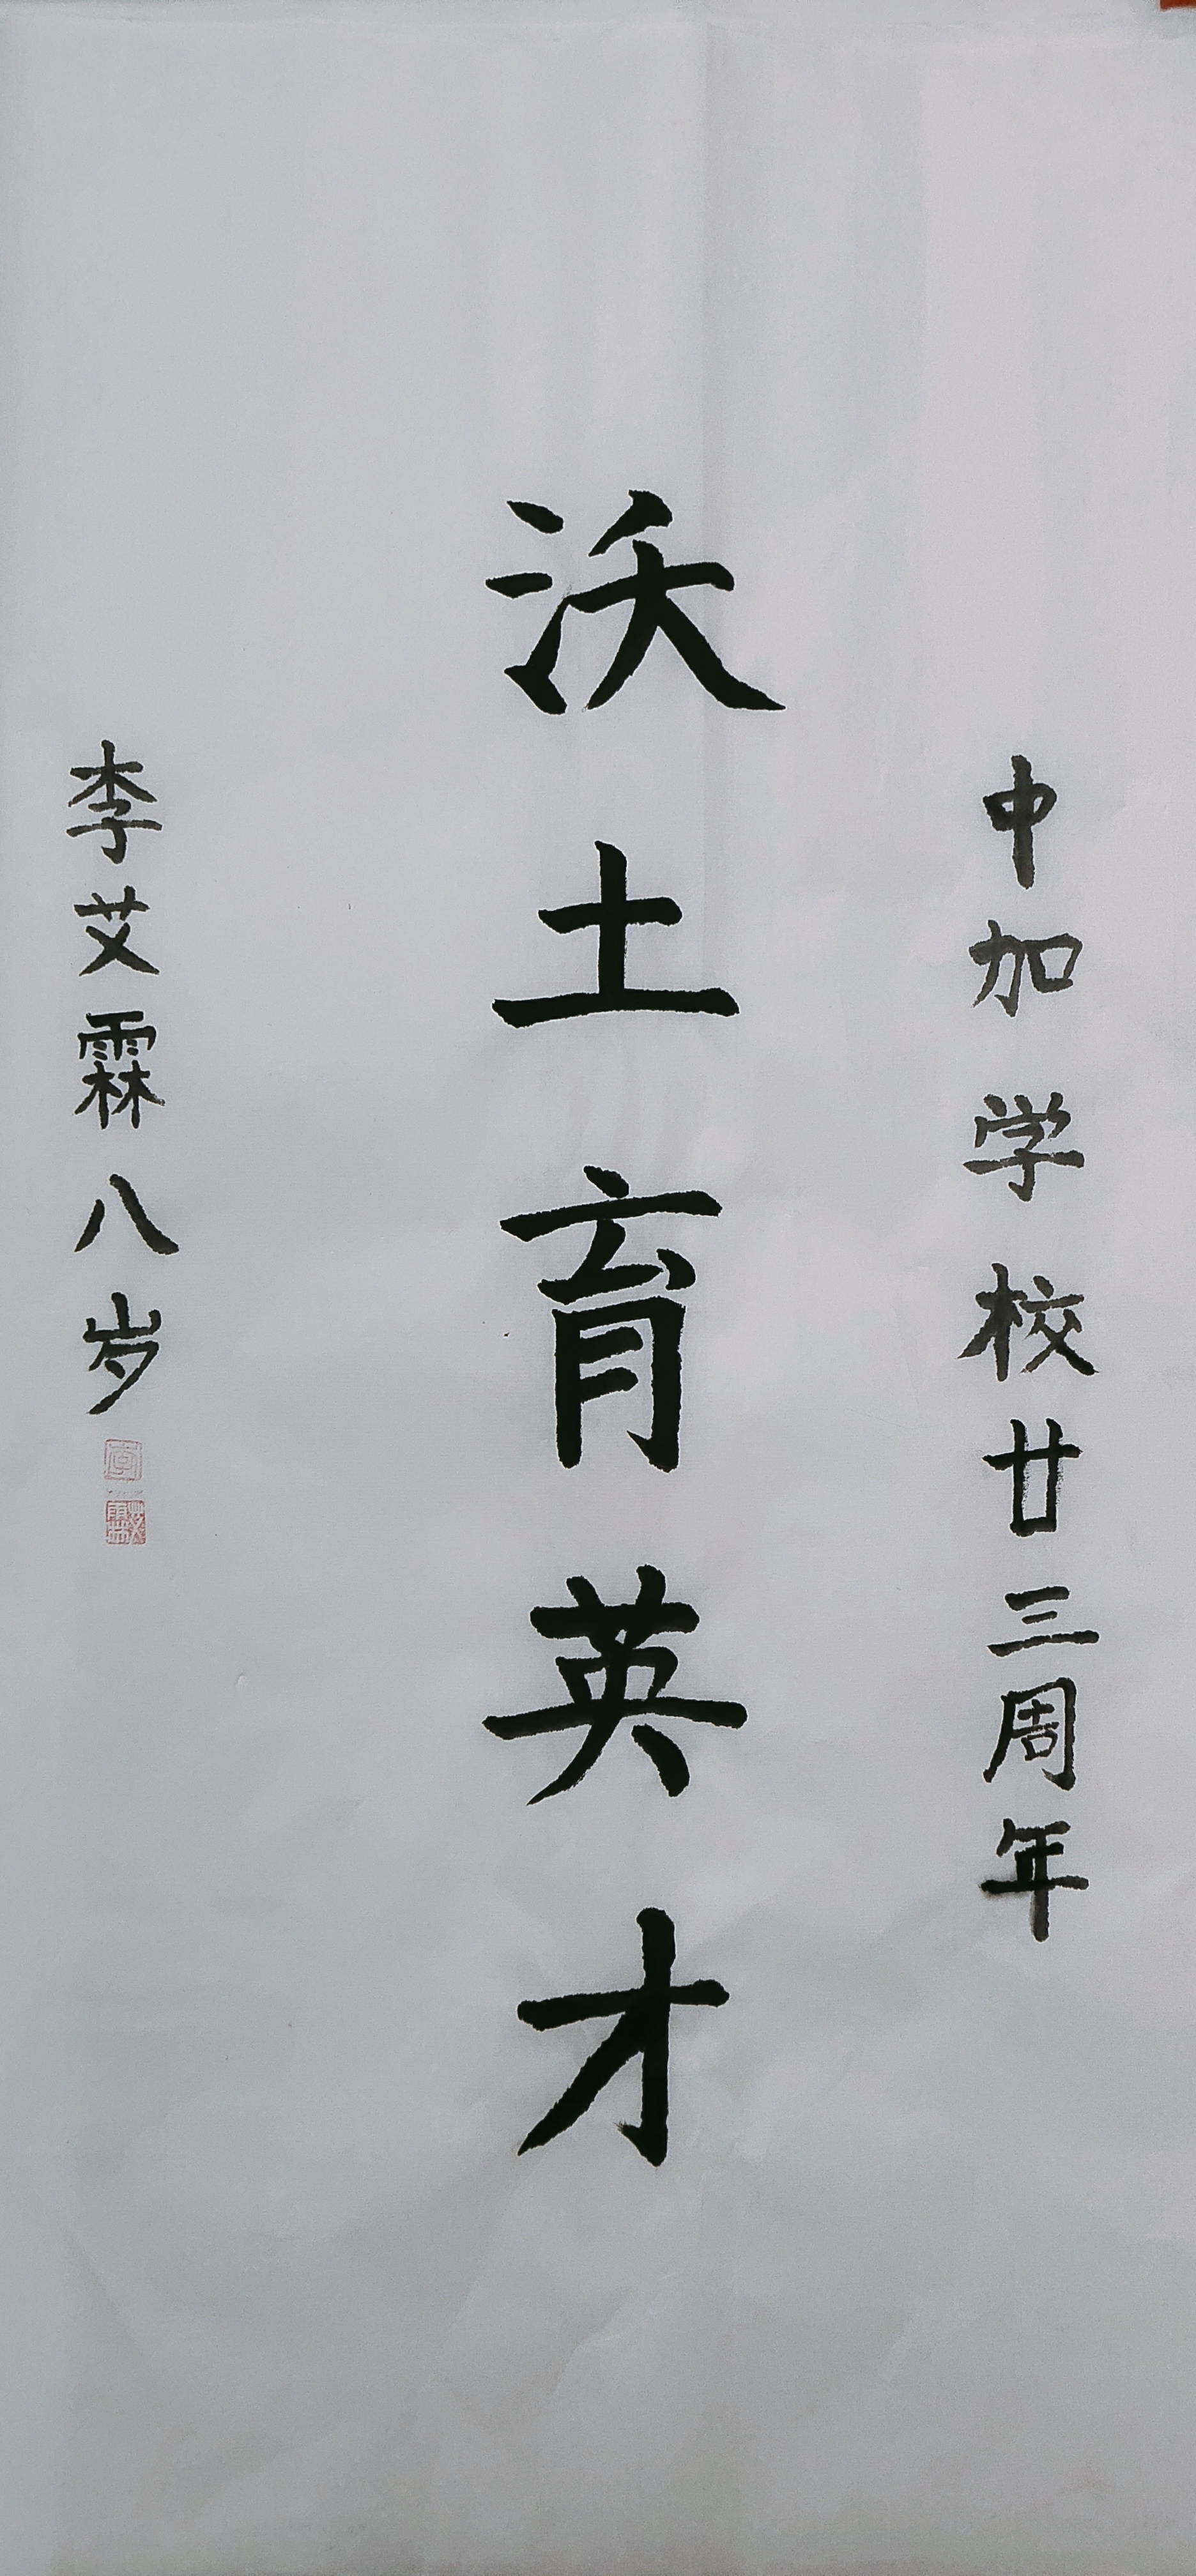 中加学校廿三周年
沃土育英才
李艾霖八岁